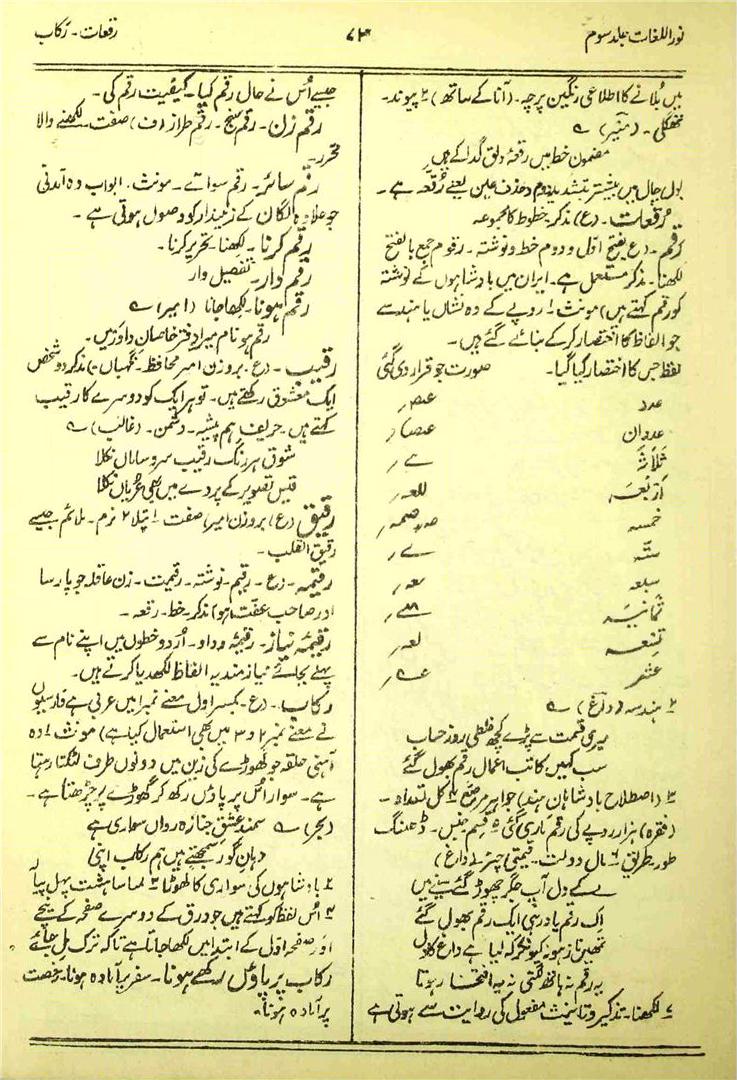 نور اللغات جلد سوم
۷۳
رقعات۔ رکاب
میں بلانے کا اطلاعی رنگین پرچہ۔ (آنا کے ساتھ) ۲ پیوند۔
تھگلی۔ (منیر) ؎
مضمون خط میں رقعۂ دلق گدا کے ہیں
بول چال میں بیشتر بتشدید دوم و حذف عین یعنے رُقّہ ہے۔
رُقعات۔ (ع) مذکر۔ خطوط کا مجموعہ
رقم۔ (ع بفتح اوّل و دوم خط و نوشتہ۔ رقوم جمع بالفتح
لکھنا۔ مذکر مستعمل ہے۔ ایران میں بادشاہوں کے نوشتہ
کو رقم کہتے ہیں) مونث ۱ روپے کے وہ نشاں یا ہندسے
جو الفاظ کا اختصار کر کے بنائے گئے ہیں۔
لفظ جس کا اختصار کیا گیا۔ صورت جو قرار دی گئی
عدد
عددان
ثلاثہ
اَربُعہ
خمسہ
ستّہ
سبعہ
ثمانیہ
تسعہ
عشر
۲ ہندسہ (داغ) ؎
میری قسمت سے پڑے کچھ غلطی روز حساب
سب کہیں کاتب اعمال رقم بھول گئے
۳ (اصطلاح بادشاہان ہند) جواہر مرصّع ۴ کل تعداد۔
(فقرہ) ہزار روپے کی رقم ماری گئی ۵ قسم جنس۔ ڈھنگ
طور طریق ۶ مال دولت۔ قیمتی چیز (داغ)
لے کے دل آپ جگر چھوڑ گئے سینے میں
اِک رقم یاد رہی ایک رقم بھول گئے
تمھیں ناز ہو نہ کیونکر کہ لیا ہے داغ کا دل
یہ رقم نہ ہاتھ لگتی نہ یہ افتخار ہوتا
۷ لکھنا۔ تذکیر و تانیث مفعول کی رعایت سے ہوتی ہے
جیسے اُس نے حال رقم کیا۔ کیفیت رقم کی۔
رقم زن۔ رقم سنج۔ رقم طراز (ف) صفت۔ لکھنے والا
محرر۔
رقم سائر۔ رقم سوائے۔ مونث۔ ابواب وہ آمدنی
جو علاوہ لگان کے زمیندار کو وصول ہوتی ہے۔
رقم کرنا۔ لکھنا۔ تحریر کرنا۔
رقم وار۔ تفصیل وار
رقم ہونا۔ لکھا جانا (امیر) ؎
رقم ہو نام میرا دفتر خاصان داور میں۔
رقیب۔ (ع۔ بروزن امیر محافظ۔ نگہبان) مذکر دو شخص
ایک معشوق رکھتے ہیں۔ تو ہر ایک کو دوسرے کا رقیب
کہتے ہیں۔ حریف ہم پیشہ۔ دشمن۔ (غالب) ؎
شوق ہر رنگ رقیب سر و ساماں نکلا
قیس تصویر کے پردے میں بھی عُریاں نکلا
رقیق (ع) بروزن امیر) صفت ۱ پتلا ۲ نرم۔ ملائم جیسے
رقیق القلب۔
رقیمہ۔ (ع۔ رقیم۔ نوشتہ۔ رقیمت۔ زن عاقلہ جو پارسا
اور صاحب عفّت ہو) مذکر۔ خط۔ رقعہ۔
رقیمۂ نیاز۔ رقیمۂ وداد۔ اُردو خطوں میں اپنے نام سے
پہلے بجائے نیاز مند یہ الفاظ لکھدیا کرتے ہیں۔
رکاب۔ (ع۔ بکسر اول معنے نمبر ۱ میں عربی ہے فارسیوں
نے معنے نمبر ۲ و ۳ میں بھی استعمال کیا ہے) مونث ۱ وہ
آہنی حلقہ جو گھوڑے کی زین میں دونوں طرف لٹکتا رہتا
ہے۔ سوار اس پر پاؤں رکھ کر گھوڑے پر چڑھتا ہے۔
(بحر) ؎ سمند عشق جنازہ رواں سواری ہے
دہان گور سمجھتے ہیں ہم رکاب اپنی
۲ بادشاہوں کی سواری کا گھوڑا ۳ لمبا سا ہشت پہل پیالہ
۴ اُس لفظ کو کہتے ہیں جو ورق کے دوسرے صفحہ کے نیچے
اور صفحہ اوّل کے ابتدا میں لکھا جاتا ہے تا کہ ترک مل جائے
رکاب پر پاؤں رکھے ہونا۔ سفر پر آمادہ ہونا۔ رخصت
پر آمادہ ہونا۔